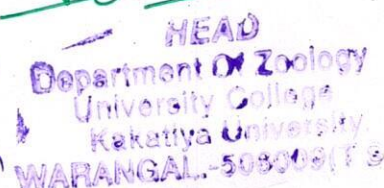 HEAD
Department Of Zoology
University College
Kakatiya University
WARANGAL.-506009(T S